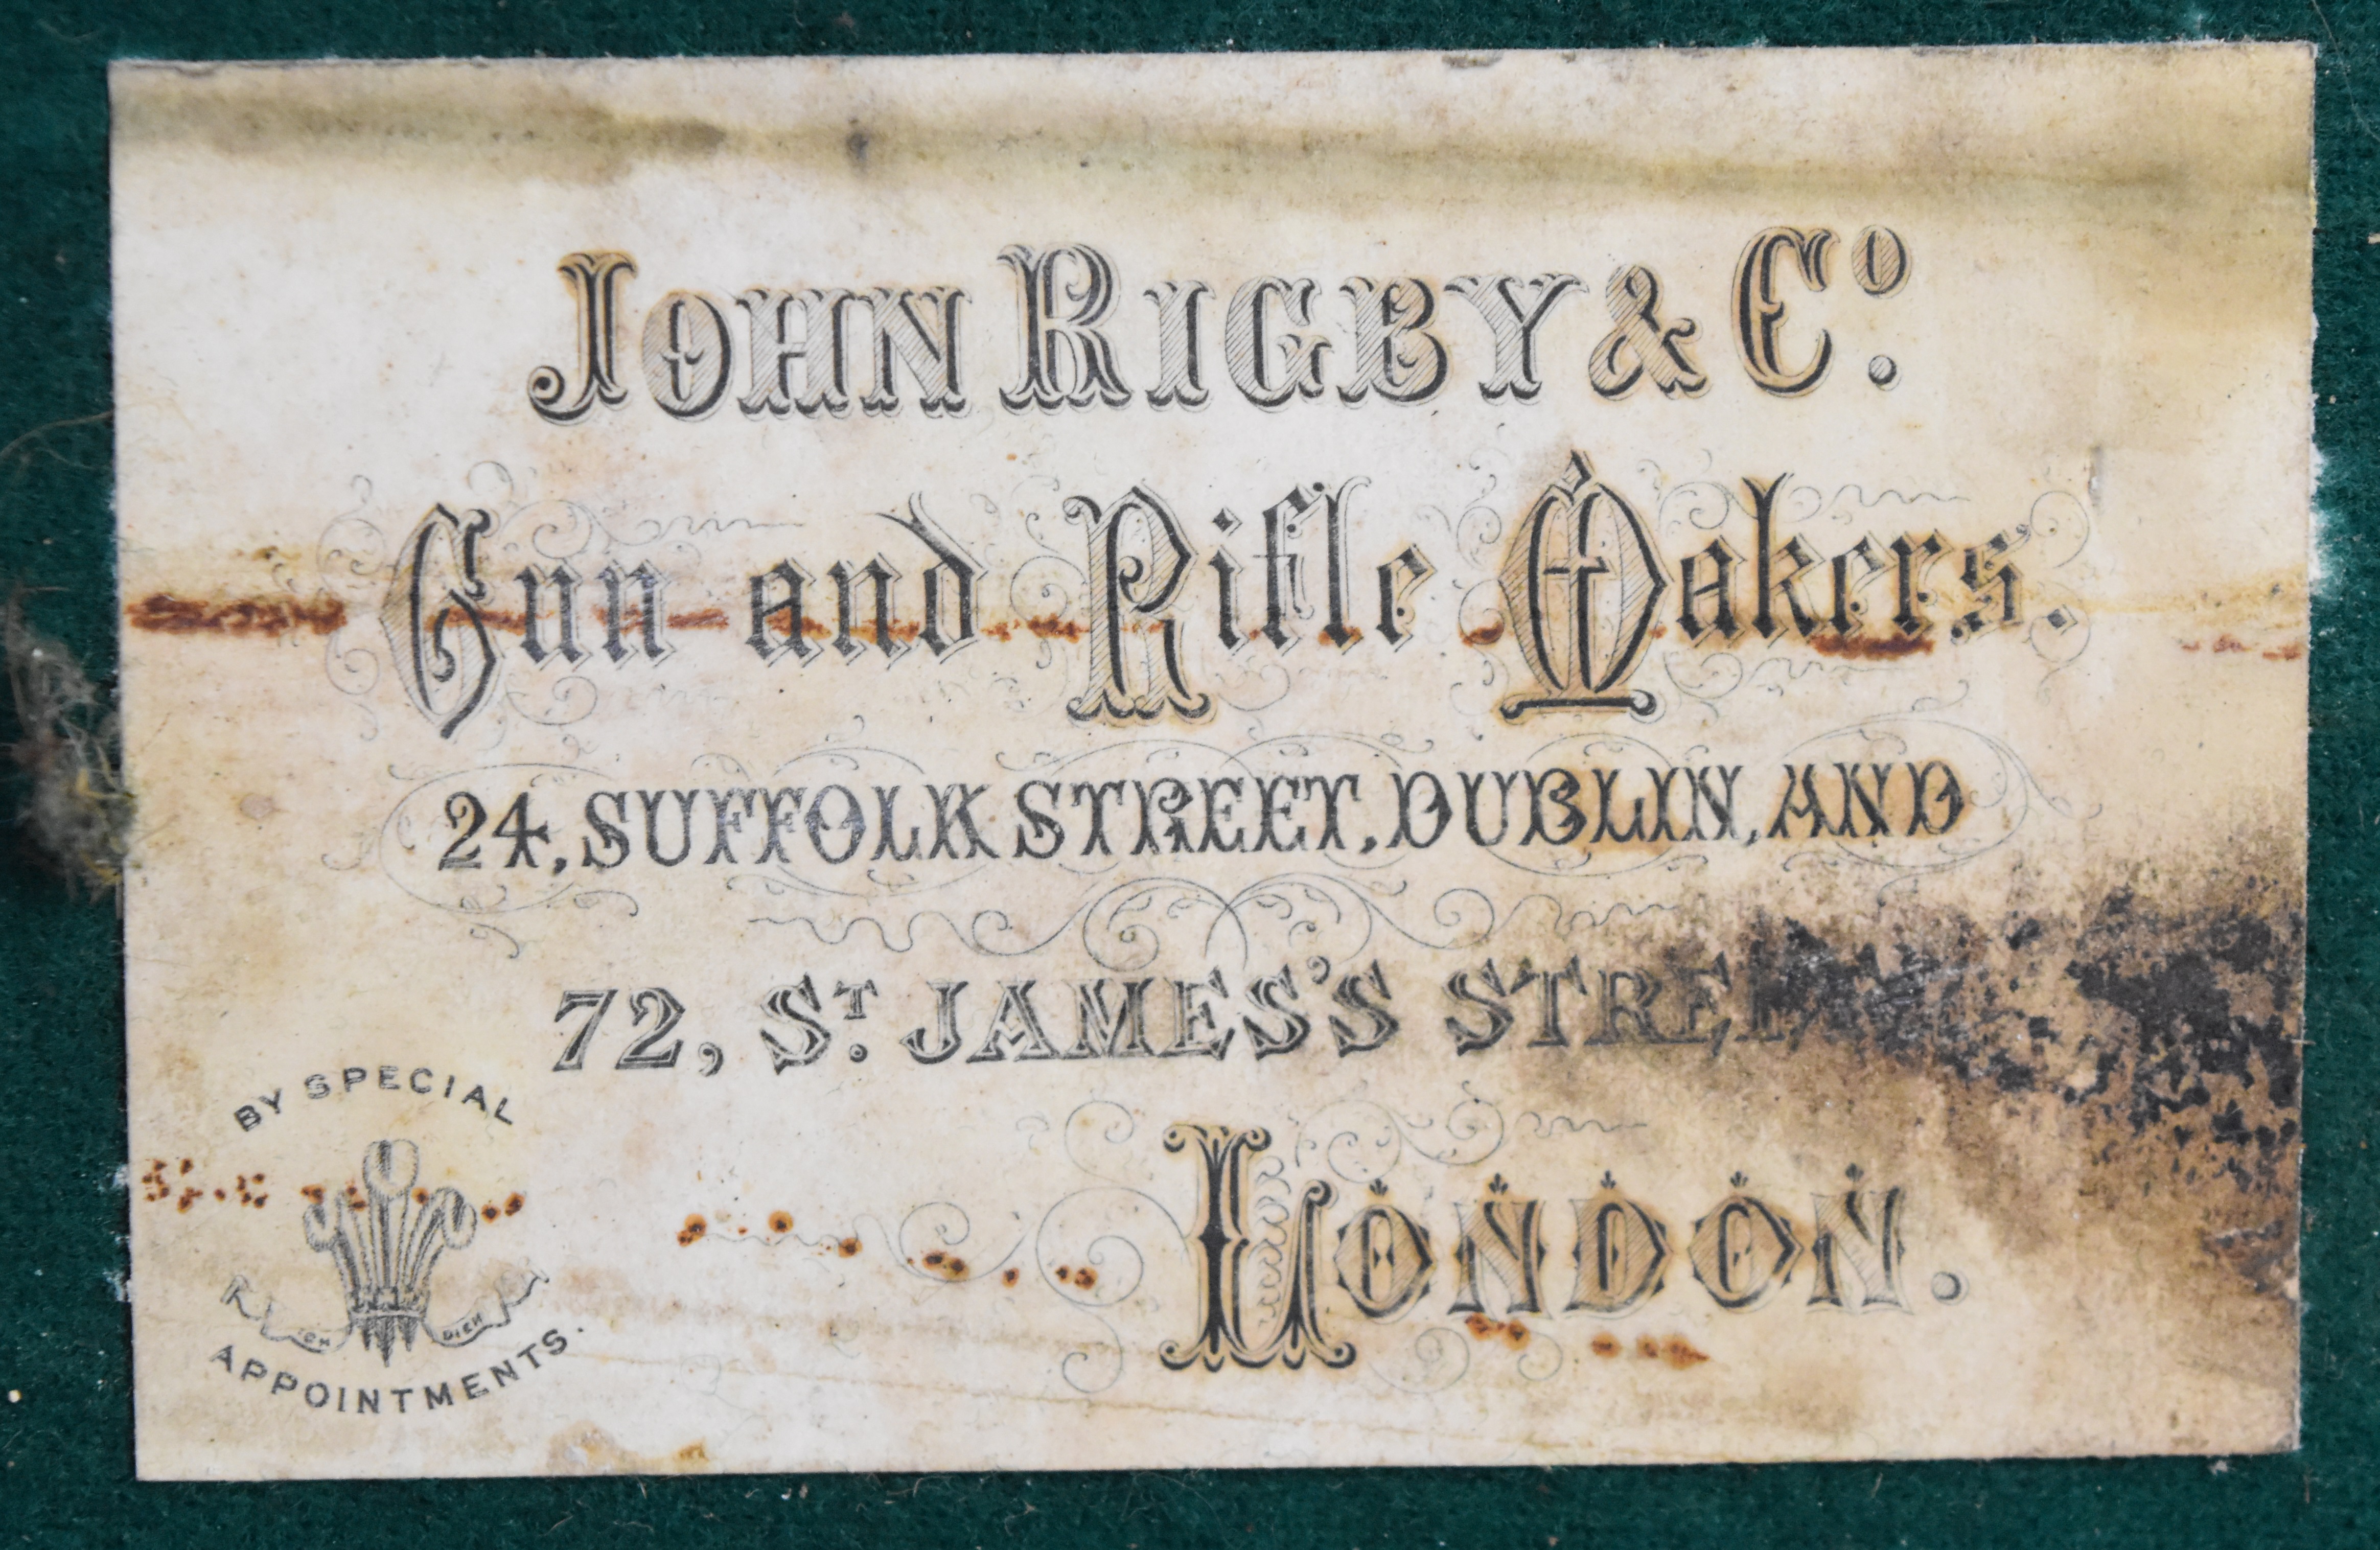 JOHN RIGBY & Co.
Gun and Rifle Makers.
24, SUFFOLK STREET, DUBLIN, AND
72, ST. JAMES'S STREET
LONDON.
BY SPECIAL
ICH DIEN
APPOINTMENTS.